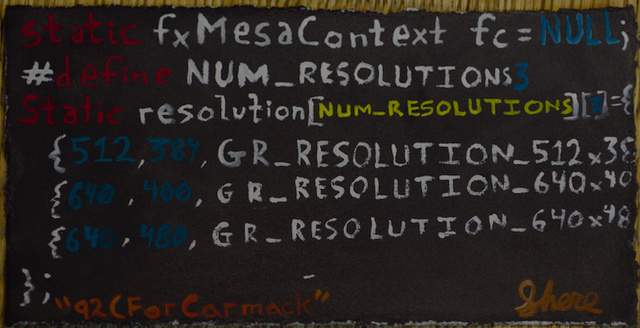 static fxMesaContext fc=NULL;
#define NUM_RESOLUTIONS3
Static resolution[NUM_RESOLUTIONS][3]={
{512,384, GR_RESOLUTION_512x38
{640,400, GR_RESOLUTION_640x40
{640,480, GR_RESOLUTION_640x48
};
"q2CForCarmack"